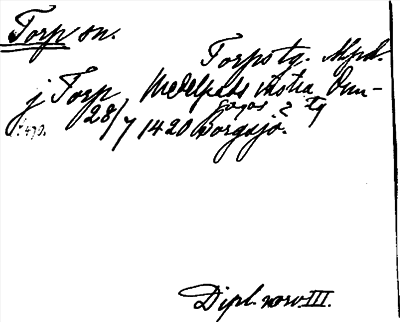 Torp sn.
Torps tg. Mpd.
j Torp Medelpads västra Dom-
sagas tg
28/7 1420 Borgsjö.
Dipl. norv. III.